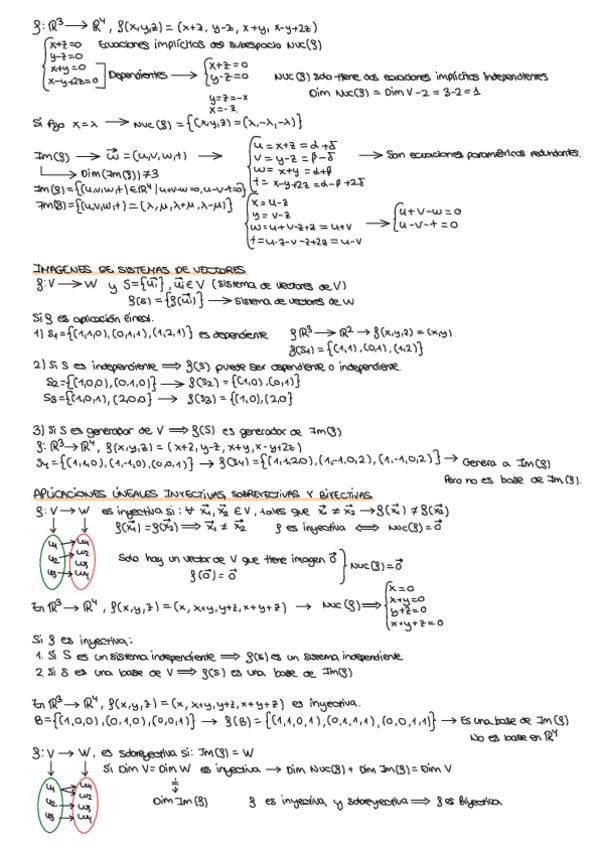 f: ℝ³ → ℝ⁴, f(x,y,z) = (x+z, y-z, x+y, x-y+2z)
{x+z=0 Ecuaciones implícitas del subespacio Nuc(f)
y-z=0
x+y=0
x-y+2z=0] Dependientes → {x+z=0
y-z=0
y=z=-x
x=-z
Nuc(f) solo tiene dos ecuaciones implícitas independientes
Dim Nuc(f) = Dim V - 2 = 3-2 = 1
Si fijo x=λ → Nuc(f) = {(x,y,z) = (λ,-λ,-λ)}
Im(f) → w⃗ = (u,v,w,t) → {u = x+z = α+δ
v = y-z = β-δ
w = x+y = α+β
t = x-y+2z = α-β+2δ
→ Son ecuaciones paramétricas redundantes.
Dim(Im(f)) ≠ 3
Im(f) = {(u,v,w,t) ∈ ℝ⁴ | u+v-w=0, u-v-t=0}
Im(f) = {(u,v,w,t) = (λ, μ, λ+μ, λ-μ)}
{x = u-z
y = v-z
w = u+v-z+z = u+v
t = u-z-v-z+2z = u-v
→ {u+v-w=0
u-v-t=0
IMAGENES DE SISTEMAS DE VECTORES
f: V → W y S={u⃗i}, u⃗i ∈ V (sistema de vectores de V)
f(S) = {f(u⃗i)} → Sistema de vectores de W
Si f es aplicación lineal.
1) S₁={(1,1,0),(0,1,1),(1,2,1)} es dependiente f: ℝ³ → ℝ² → f(x,y,z) = (x,y)
f(S₁) = {(1,1),(0,1),(1,2)}
2) Si S es independiente ⟹ f(S) puede ser dependiente o independiente.
S₂={(1,0,0),(0,1,0)} → f(S₂) = {(1,0),(0,1)}
S₃={(1,0,1),(2,0,0)} → f(S₃) = {(1,0),(2,0)}
3) Si S es generador de V ⟹ f(S) es generador de Im(f)
f: ℝ³ → ℝ⁴, f(x,y,z) = (x+z, y-z, x+y, x-y+2z)
S₄={(1,1,0),(1,-1,0),(0,0,1)} → f(S₄) = {(1,1,2,0),(1,-1,0,2),(1,-1,0,2)} → Genera a Im(f)
Pero no es base de Im(f).
APLICACIONES LINEALES INYECTIVAS, SOBREYECTIVAS Y BIYECTIVAS
f: V → W es inyectiva si: ∀ x⃗₁, x⃗₂ ∈ V, tales que x⃗₁ ≠ x⃗₂ → f(x⃗₁) ≠ f(x⃗₂)
f(x⃗₁) = f(x⃗₂) ⟹ x⃗₁ ≠ x⃗₂ f es inyectiva ⟺ Nuc(f) = 0⃗
u₁ w₁
u₂ w₂
w₃
u₃ w₄
Solo hay un vector de V que tiene imagen 0⃗
f(0⃗) = 0⃗ } Nuc(f) = 0⃗
En ℝ³ → ℝ⁴, f(x,y,z) = (x, x+y, y+z, x+y+z) → Nuc(f) ⟹ {x=0
x+y=0
y+z=0
x+y+z=0
Si f es inyectiva:
1. Si S es un sistema independiente ⟹ f(S) es un sistema independiente
2. Si S es una base de V ⟹ f(S) es una base de Im(f)
En ℝ³ → ℝ⁴, f(x,y,z) = (x, x+y, y+z, x+y+z) es inyectiva.
B={(1,0,0),(0,1,0),(0,0,1)} → f(B) = {(1,1,0,1),(0,1,1,1),(0,0,1,1)} → Es una base de Im(f)
No es base en ℝ⁴
f: V → W, es sobreyectiva si: Im(f) = W
Si Dim V = Dim W es inyectiva → Dim Nuc(f) + Dim Im(f) = Dim V
Dim Im(f) f es inyectiva y sobreyectiva ⟹ f es Biyectiva
u₁ w₁
w₂
u₂ w₃
u₃ w₄